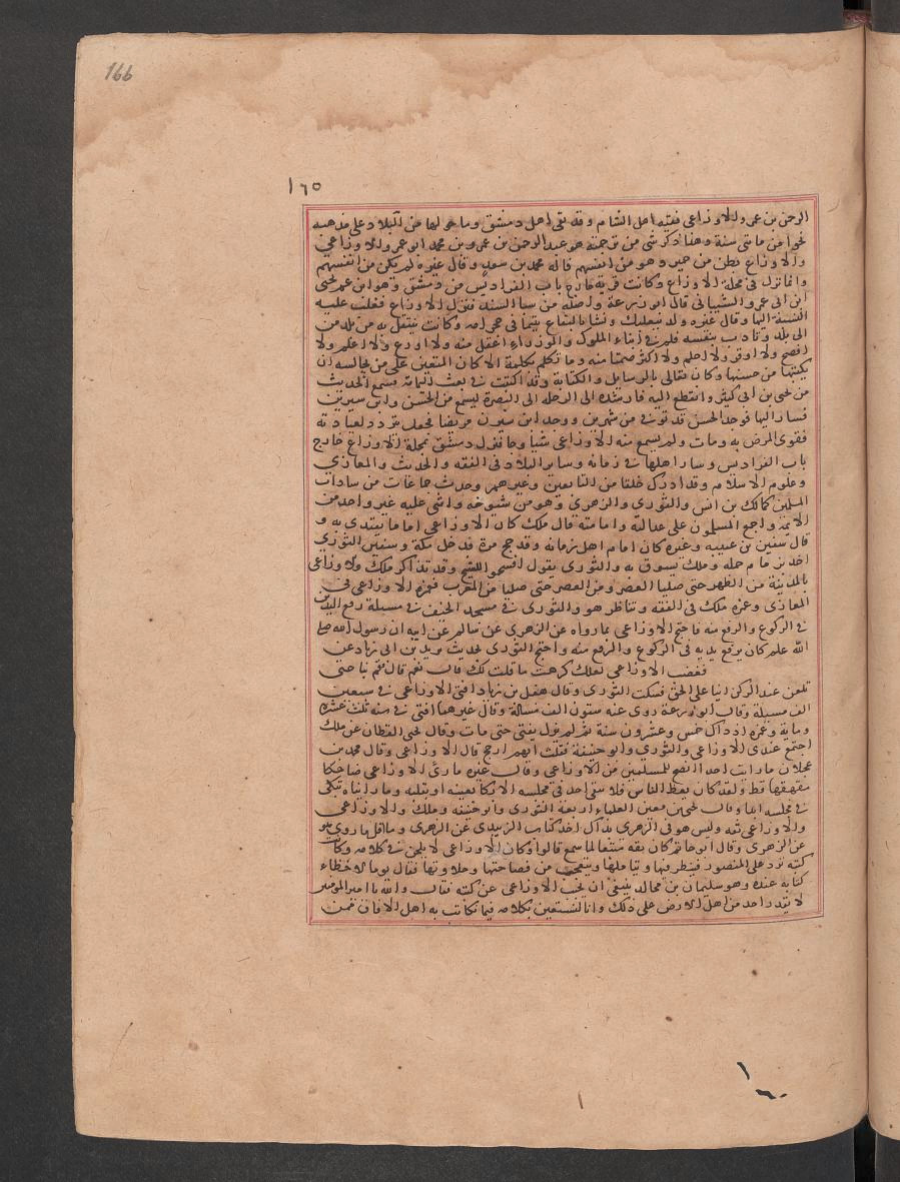 166
١٦٥
الرحمن بن عمرو الاوزاعي فقيه اهل الشام وقد بقي اهل دمشق وما حولها من البلاد على مذهبه
نحوا من مايتي سنة وهذا ذكر شي من ترجمته هو عبد الرحمن بن عمرو بن محمد ابو عمرو الاوزاعي
والاوزاع بطن من حمير وهو من انفسهم قاله محمد بن سعد وقال غيره لم يكن من انفسهم
وانما نزل في محلة الاوزاع وكانت قرية خارج باب الفراديس من دمشق وهو ابن عم يحيى
ابن ابي عمرو الشيباني قال ابو زرعة واصله من سبا السند فنزل الاوزاع فغلب عليه
النسبة اليها وقال غيره ولد ببعلبك ونشا بالبقاع يتيما في حجر امه وكانت تنتقل به من بلد من
الى بلد وتادب بنفسه فلم في ابناء الملوك والوزراء اعقل منه ولا اورع ولا اعلم ولا
افصح ولا اوقر ولا احلم ولا اكثر صمتا منه وما تكلم بكلمة الا كان المتعين على من جالسه ان
يكتبها من حسنها وكان يعاني بالرسايل والكتابة وقد اكتتب في بعث اليمامة فسمع الحديث
من يحيى بن ابي كثير وانقطع اليه فارشده الى الرحلة الى البصرة ليسمع من الحسن وابن سيرين
فسار اليها فوجد الحسن قد توفي من شهرين ووجد ابن سيرين مريضا فجعل يتردد لعيادته
فقوي المرض به ومات ولم يسمع منه الاوزاعي شيا وجا فنزل دمشق بمحلة الاوزاع خارج
باب الفراديس وساد اهلها في زمانه وساير البلاد في الفقه والحديث والمغازي
وعلوم الاسلام وقد ادرك خلقا من التابعين وغيرهم وحدث جماعات من سادات
المسلمين كمالك بن انس والثوري والزهري وهو من شيوخه واثنى عليه غير واحد من
الايمة واجمع المسلمون على عدالته وامامته قال ملك كان الاوزاعي اماما يقتدى به و
قال سفين بن عيينة وغيره كان امام اهل زمانه وقد حج مرة فدخل مكة وسفين الثوري
اخذ بزمام جمله وملك يسوق به والثوري يقول افسحوا للشيخ وقد تذاكر ملك والاوزاعي
بالمدينة من الظهر حتى صليا العصر ومن العصر حتى صليا من المغرب فغمره الاوزاعي في
المغازي وغمره ملك في الفقه وتناظر هو والثوري في مسجد الخيف في مسيلة رفع اليدين
في الركوع والرفع منه فاحتج الاوزاعي بما رواه عن الزهري عن سالم عن ابيه ان رسول الله صلى
الله عليه كان يرفع يديه في الركوع والرفع منه واحتج الثوري لحديث يزيد بن ابي زياد عن
فغضب الاوزاعي لعلك كرهت ما قلت لك قال نعم قال فقم بنا حتى
نلتعن عند الركن اينا على الحق فسكت الثوري وقال هقل بن زياد افتى الاوزاعي في سبعين
الف مسيلة وقال ابو زرعة روى عنه ستون الف مسالة وقال غيرهما افتى في سنة ثلث عشرة
وماية وعمره اذ ذاك خمس وعشرون سنة ثم لم يزل يفتي حتى مات وقال يحيى القطان عن ملك
اجتمع عندي الاوزاعي والثوري وابو حنيفة فقلت ايهم ارجح قال الاوزاعي وقال محمد بن
عجلان ما رايت احد انصح للمسلمين من الاوزاعي وقال غيره ما رئي الاوزاعي ضاحكا
مقهقها قط ولقد كان يعظ الناس فلا يبقى احد في مجلسه الا بكا بعينه او بقلبه وما رايناه يبكي
في مجلسه ابدا وقال يحيى بن معين العلماء اربعة الثوري وابو حنيفة وملك والاوزاعي
والاوزاعي ثقه وليس هو في الزهري بذاك اخذ كتاب الزبيدي عن الزهري وما اقل ما روى هو
عن الزهري وقال ابو حاتم كان ثقه متبعا لما سمع قالوا وكان الاوزاعي لا يلحن في كلامه وكانت
كتبه ترد على المنصور فينظر فيها ويتاملها ويتعجب من فصاحتها وحلاوتها فقال يوما لاحظاء
كتابه عنده وهو سليمان بن مجالد ينبغي ان نجيب الاوزاعي عن كتبه فقال والله يا امير المومنين
لا يقدر احد من اهل الارض على ذلك وانا لنستعين بكلامه فيما نكاتب به اهل الافاق ممن